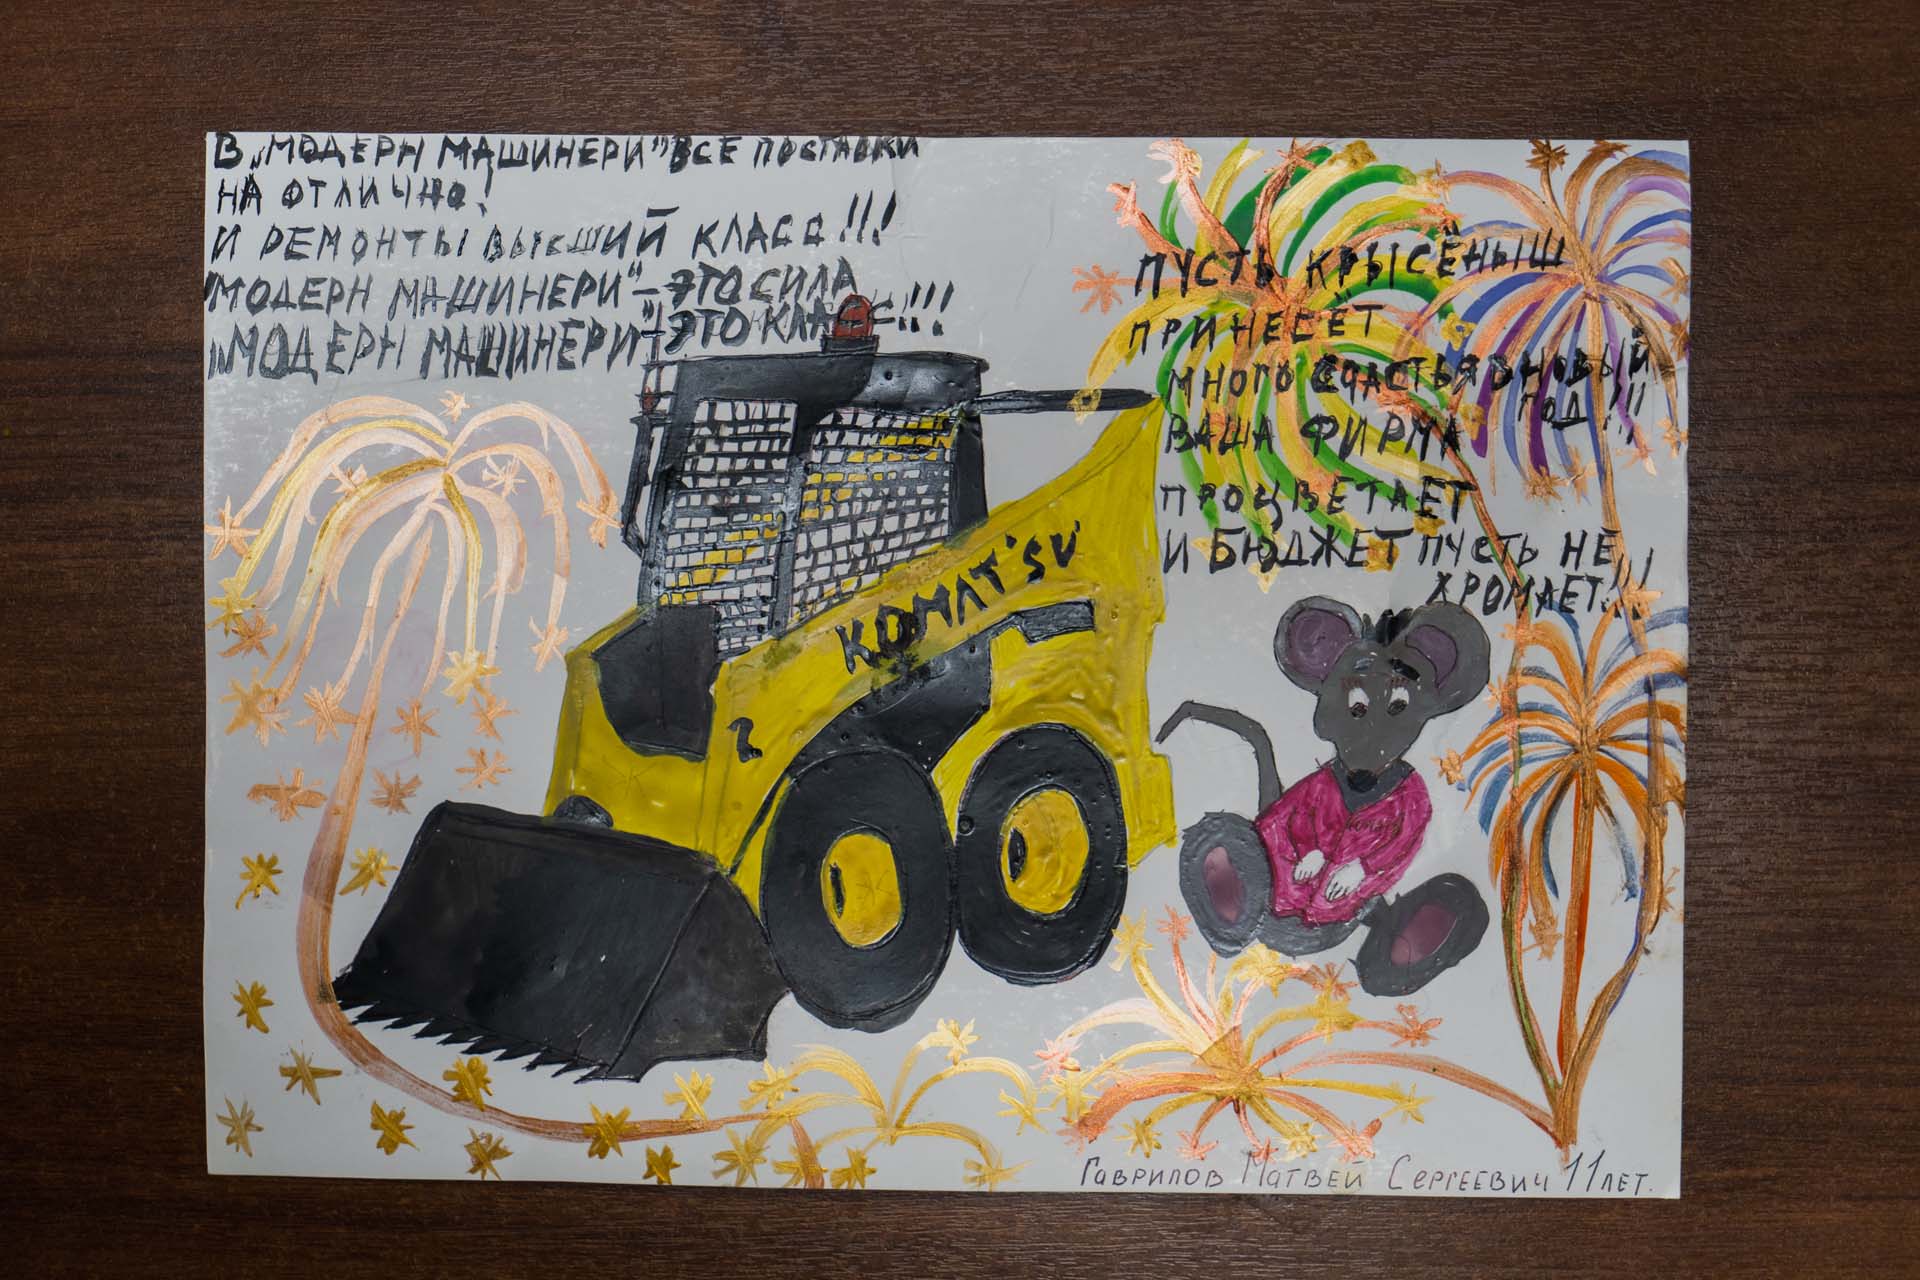 В „МОДЕРН МАШИНЕРИ" ВСЕ ПОСТАВКИ
НА ОТЛИЧНО!
И РЕМОНТЫ ВЫСШИЙ КЛАСС!!!
"МОДЕРН МАШИНЕРИ" – ЭТО СИЛА
„МОДЕРН МАШИНЕРИ" – ЭТО КЛАСС!!!
ПУСТЬ КРЫСЁНЫШ
ПРИНЕСЁТ
МНОГО СЧАСТЬЯ В НОВЫЙ
ГОД!!!
ВАША ФИРМА
ПРОЦВЕТАЕТ
И БЮДЖЕТ ПУСТЬ НЕ
ХРОМАЕТ!!!
KOMAT'SU
2
Гаврилов Матвей Сергеевич 11 лет.